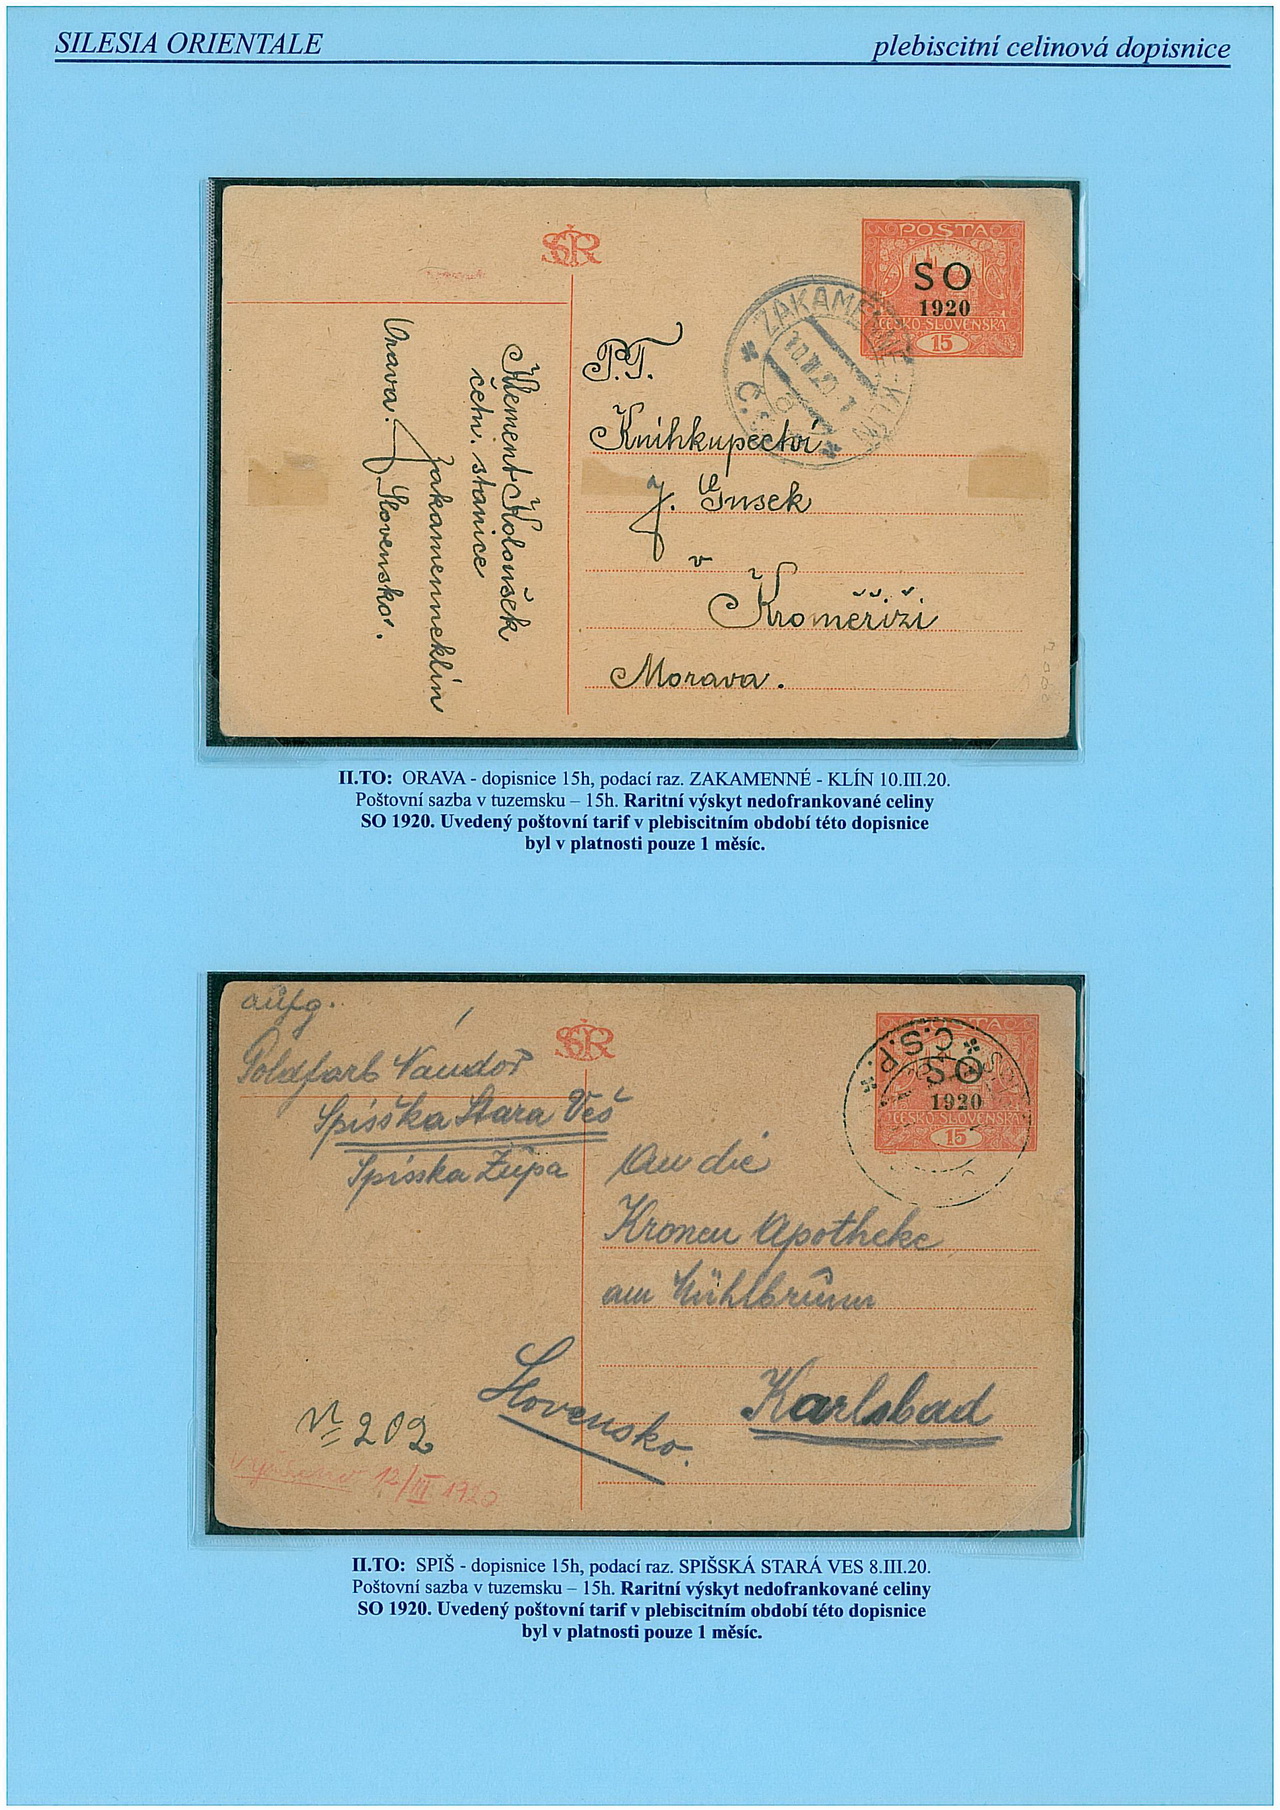 SILESIA ORIENTALE
plebiscitní celinová dopisnice
ČSR
POŠTA
SO
1920
ČESKO-SLOVENSKÁ
15
ZAKAMENNÉ-KLÍN
P.T.
Knihkupectví
J. Gusek
v
Kroměříži
Morava.
Klement Koloušek
četn. stanice
Zakamenneklín
Orava. Slovensko.
II.TO: ORAVA - dopisnice 15h, podací raz. ZAKAMENNÉ - KLÍN 10.III.20.
Poštovní sazba v tuzemsku – 15h. Raritní výskyt nedofrankované celiny
SO 1920. Uvedený poštovní tarif v plebiscitním období této dopisnice
byl v platnosti pouze 1 měsíc.
aufg.
Goldfarb Nándor
Spišska Stara Veš
Spišska Župa
ČSR
POŠTA
SO
1920
ČESKO-SLOVENSKÁ
15
Č.S.P.
An die
Kronen Apotheke
am Mühlbrunn
Karlsbad
Slovensko.
№ 202
12/III. 1920
II.TO: SPIŠ - dopisnice 15h, podací raz. SPIŠSKÁ STARÁ VES 8.III.20.
Poštovní sazba v tuzemsku – 15h. Raritní výskyt nedofrankované celiny
SO 1920. Uvedený poštovní tarif v plebiscitním období této dopisnice
byl v platnosti pouze 1 měsíc.